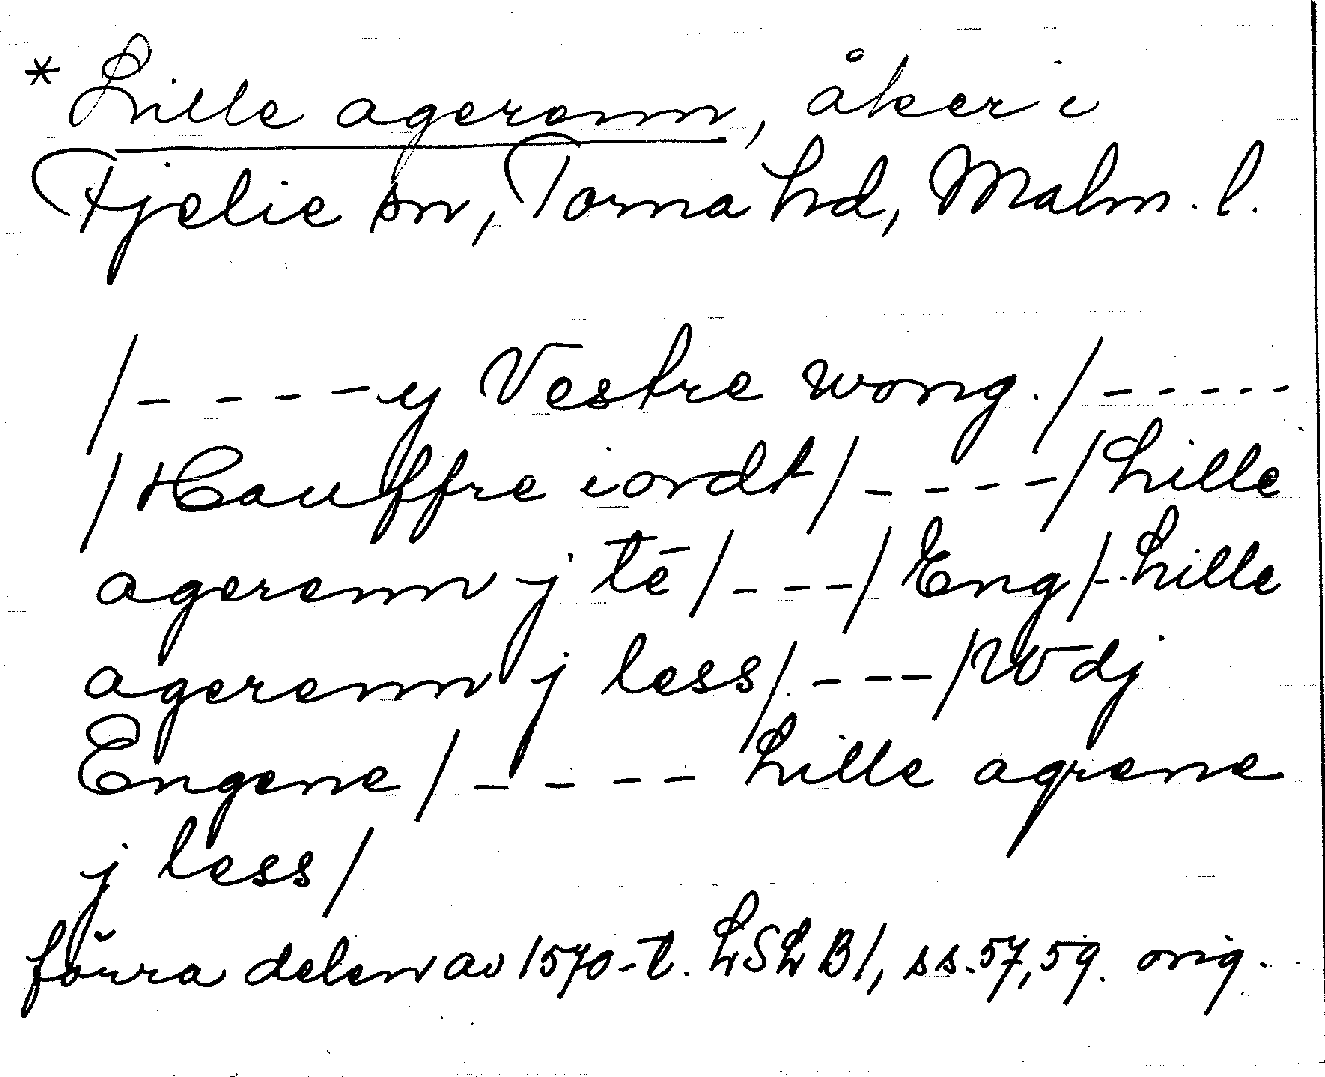 * Lille agerenn, åker i
Fjelie sn, Torna hd, Malm. l.
/- - - - y Vestre wong. / - - - - -
/ Hauffre iordt / - - - - / Lille
agerenn j tē / - - - / Eng / - Lille
agerenn j less / - - - / Wdj
Engene / - - - - Lille agrene
j less /
förra delen av 1570-t. LSLB 1, ss. 57, 59. orig.